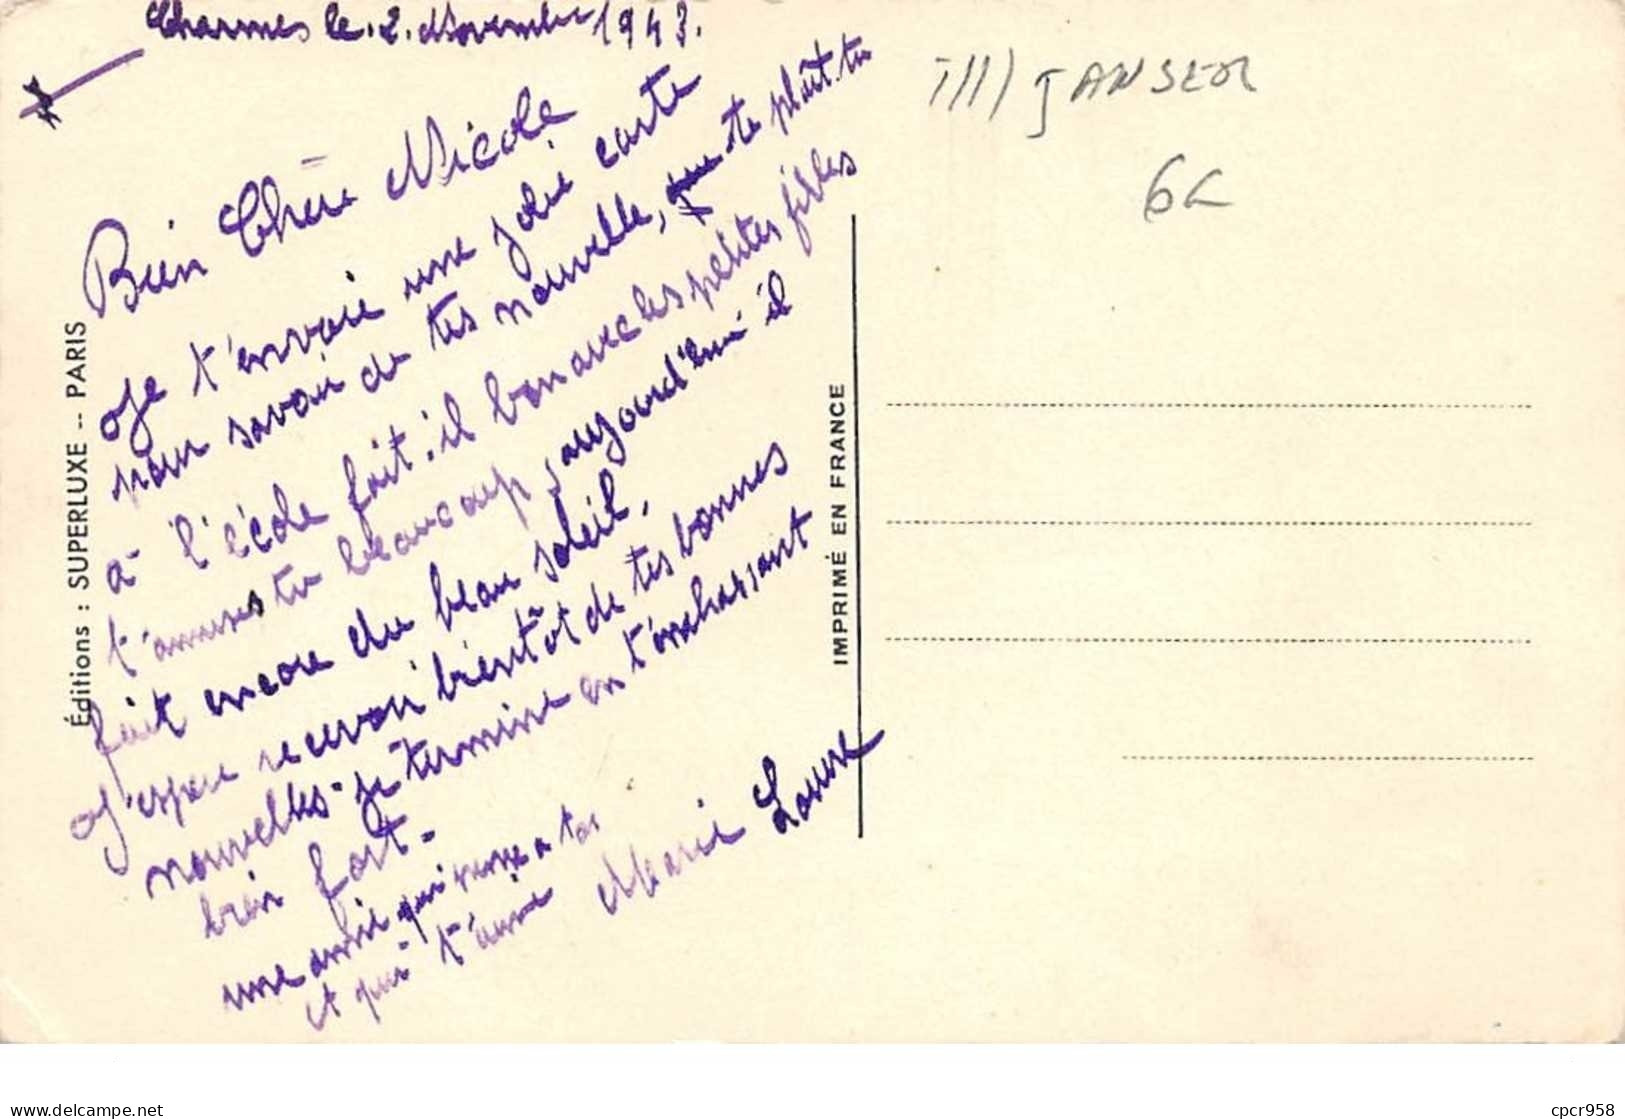 Charmes le. 2. Novembre 1943.
Bien Chère Nicole
Je t'envoie une jolie carte
pour savoir de tes nouvelle, te plaît-tu
à l'école fait-il bon avec les petites filles
t'amuses tu beaucoup, aujourd'hui il
fait encore du beau soleil,
J'espère recevoir bientôt de tes bonnes
nouvelles - je termine en t'embrassant
bien fort -
une amie qui pense a toi
et qui t'aime Marie Laure
Éditions : SUPERLUXE -- PARIS
IMPRIMÉ EN FRANCE
JANSER
6€
delcampe.net
cpcr958